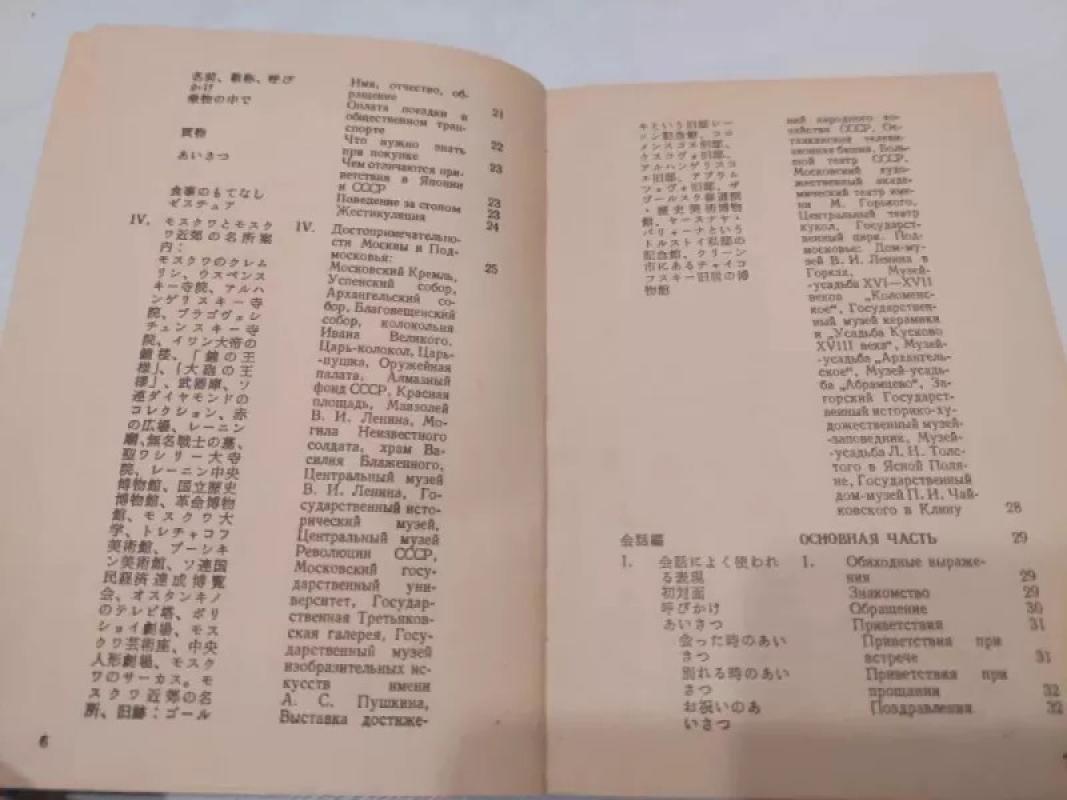 名前、敬称、呼び
かけ
乗物の中で
買物
あいさつ
食事のもてなし
ゼスチュア
IV. モスクワとモスク
ワ近郊の名所案
内：
モスクワのクレム
リン、ウスペンス
キー寺院、アルハ
ンゲリスキー寺
院、ブラゴヴェシ
チェンスキー寺
院、イワン大帝の
鐘楼、「鐘の王
様」、「大砲の王
様」、武器庫、ソ
連ダイヤモンドの
コレクション、赤
の広場、レーニン
廟、無名戦士の墓、
聖ワシリー大寺
院、レーニン中央
博物館、国立歴史
博物館、革命博物
館、モスクワ大
学、トレチャコフ
美術館、プーシキ
ン美術館、ソ連国
民経済達成博覧
会、オスタンキノ
のテレビ塔、ボリ
ショイ劇場、モス
クワ芸術座、中央
人形劇場、モスク
ワのサーカス。モ
スクワ近郊の名
所、旧跡：ゴール
6
Имя, отчество, об-
ращение 21
Оплата поездки в
общественном тран-
спорте 22
Что нужно знать
при покупке 23
Чем отличаются при-
ветствия в Японии
и СССР 23
Поведение за столом 23
Жестикуляция 24
IV. Достопримечательно-
сти Москвы и Под-
московья: 25
Московский Кремль,
Успенский собор,
Архангельский со-
бор, Благовещенский
собор, колокольня
Ивана Великого,
Царь-колокол, Царь-
-пушка, Оружейная
палата, Алмазный
фонд СССР, Красная
площадь, Мавзолей
В. И. Ленина, Мо-
гила Неизвестного
солдата, храм Ва-
силия Блаженного,
Центральный музей
В. И. Ленина, Го-
сударственный исто-
рический музей,
Центральный музей
Революции СССР,
Московский госу-
дарственный уни-
верситет, Государ-
ственная Третьяков-
ская галерея, Госу-
дарственный музей
изобразительных ис-
кусств имени
А. С. Пушкина,
Выставка достиже-
キという旧邸レー
ニン記念館、コロ
メンスコエ旧邸、
クスコヴォ旧邸、
アルハンゲリスコ
エ旧邸、アブラム
ツェヴォ旧邸、ザ
ゴールスク修道院
・歴史美術博物
館、ヤースナヤ・
パリャーナという
トルストイ私邸の
記念館、クリーン
市にあるチャイコ
フスキー旧居の博
物館
ний народного хо-
зяйства СССР, Ос-
танкинская телеви-
зионная башня, Боль-
шой театр СССР,
Московский худо-
жественный акаде-
мический театр име-
ни М. Горького,
Центральный театр
кукол, Государст-
венный цирк. Под-
московье: Дом-му-
зей В. И. Ленина в
Горках, Музей-
-усадьба XVI—XVII
веков „Коломенс-
кое“, Государствен-
ный музей керамики
и „Усадьба Кусково
XVIII века“, Музей-
-усадьба „Архангель-
ское“, Музей-усадь-
ба „Абрамцево“, За-
горский Государст-
венный историко-ху-
дожественный музей-
-заповедник, Музей-
-усадьба Л. Н. Толс-
того в Ясной Поля-
не, Государственный
дом-музей П. И. Чай-
ковского в Клину 28
会話編
I. 会話によく使われ
る表現
初対面
呼びかけ
あいさつ
会った時のあい
さつ
別れる時のあい
さつ
お祝いのあ
いさつ
ОСНОВНАЯ ЧАСТЬ 29
I. Обиходные выраже-
ния 29
Знакомство 29
Обращение 30
Приветствия 31
Приветствия при
встрече 31
Приветствия при
прощании 32
Поздравления 32